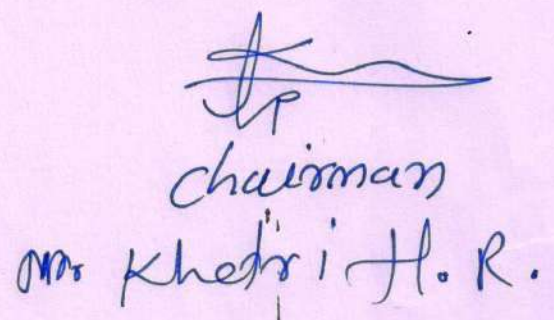 Chairman
Mr. Khetri H. R.